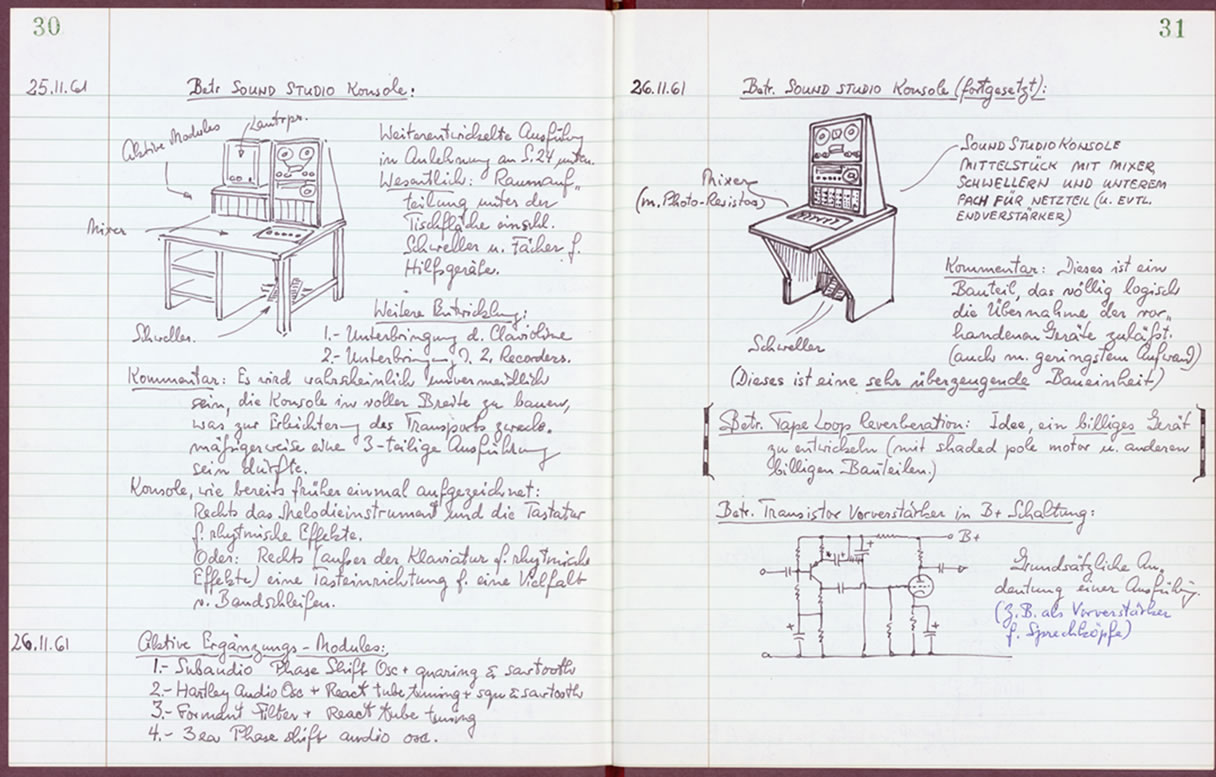 30
25.11.61
Betr. SOUND STUDIO Konsole:
Aktive Modules
Lautspr.
Mixer
Schweller
Weiterentwickelte Ausführung
in Anlehnung an S. 24 unten.
Wesentlich: Raumauf„
teilung unter der
Tischfläche einschl.
Schweller u. Fächer f.
Hilfsgeräte.
Weitere Entwicklung:
1.- Unterbringung d. Clavioline
2.- Unterbringung 2 Recorders.
Kommentar: Es wird wahrscheinlich unvermeidlich
sein, die Konsole in voller Breite zu bauen,
was zur Erleichterung des Transports zweck„
mäßigerweise eine 3-teilige Ausführung
sein dürfte.
Konsole, wie bereits früher einmal aufgezeichnet:
Rechts das Melodieinstrument und die Tastatur
f. rhytmische Effekte.
Oder: Rechts (außer der Klaviatur f. rhytmische
Effekte) eine Tasteinrichtung f. eine Vielfalt
v. Bandschleifen.
26.11.61
Aktive Ergänzungs-Modules:
1.- Subaudio Phase Shift Osc + squaring & sawtooth
2.- Hartley Audio Osc + React tube tuning + squ & sawtooth
3.- Formant Filter + React tube tuning
4.- 3 ea Phase shift audio osc.
31
26.11.61
Betr. SOUND STUDIO Konsole (fortgesetzt):
Mixer
(m. Photo-Resistors)
Schweller
SOUND STUDIO KONSOLE
MITTELSTÜCK MIT MIXER,
SCHWELLERN UND UNTEREM
FACH FÜR NETZTEIL (U. EVTL.
ENDVERSTÄRKER)
Kommentar: Dieses ist ein
Bauteil, das völlig logisch
die Übernahme der vor„
handenen Geräte zuläßt.
(auch m. geringstem Aufwand)
(Dieses ist eine sehr überzeugende Baueinheit)
Betr. Tape Loop Reverberation: Idee, ein billiges Gerät
zu entwickeln (mit shaded pole motor u. anderen
billigen Bauteilen.)
Betr. Transistor Vorverstärker in B+ Schaltung:
B+
Grundsätzliche An„
deutung einer Ausführung.
(z.B. als Vorverstärker
f. Sprechköpfe)